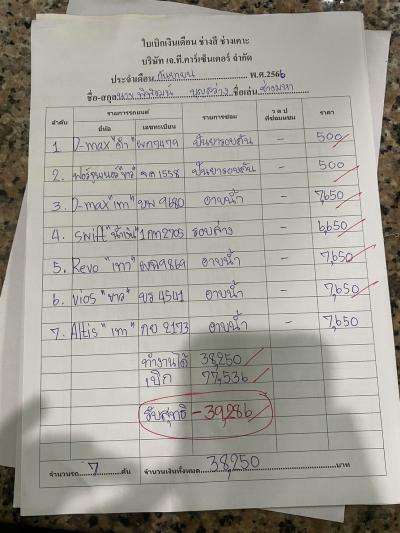 ใบเบิกเงินเดือน ช่างสี ช่างเคาะ
บริษัท เจ.ที.คาร์เซ็นเตอร์ จำกัด
ประจำเดือน กันยายน พ.ศ.2566
ชื่อ-สกุล นาย พิพัฒน์ บุญสว่าง ชื่อเล่น ช่าง
ลำดับ รายการรถยนต์ รายการซ่อม ว ด ป ที่ซ่อมแซม ราคา
ยี่ห้อ เลขทะเบียน
1 D-max "ดำ" 9479 ปั่นยารอบคัน - 500
2. ฟอร์จูนเนอร์ "ขาว" 1558 ปั่นยารอบคัน - 500
3. D-max "เทา" 9680 อาบน้ำ - 7,650
4. Swift "น้ำเงิน" 2705 รอบล่าง - 6,650
5. Revo "เทา" 9869 อาบน้ำ - 7,650
6. Vios "ขาว" 4541 อาบน้ำ - 7,650
7. Altis "เทา" กย 2173 อาบน้ำ - 7,650
ทำงานได้ 38,250
เบิก 77,536
รับสุทธิ -39,286
จำนวนรถ 7 คัน จำนวนเงินทั้งหมด 38,250 บาท